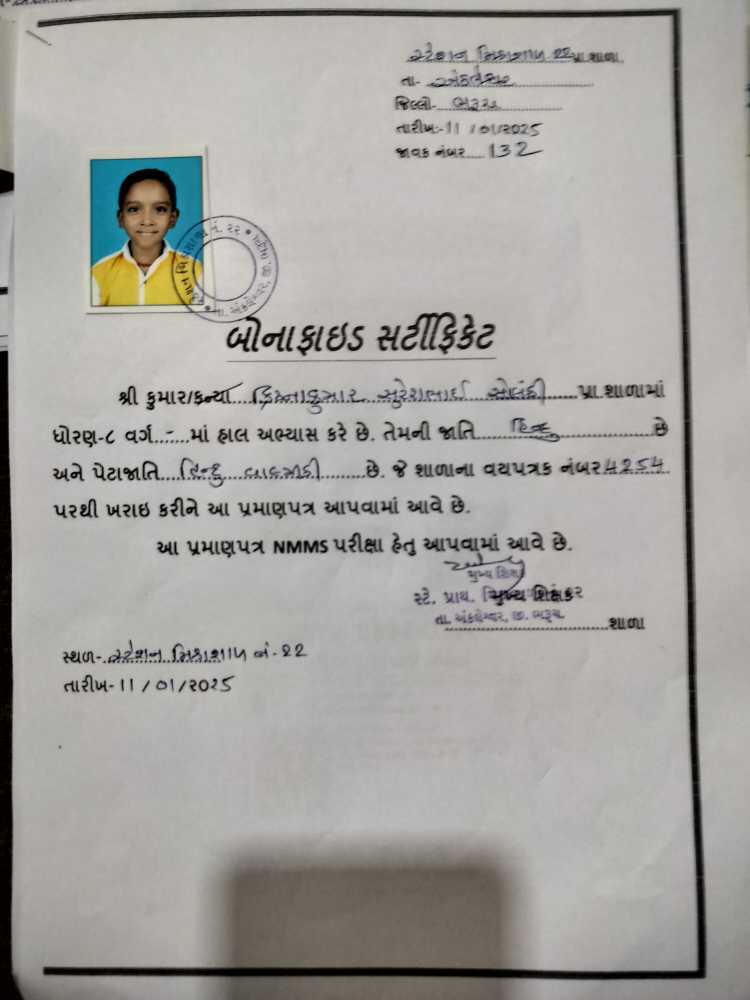 સ્ટેશન મિશ્રશાળા ૨૨ પ્રા.શાળા.
તા- અંકલેશ્વર
જિલ્લો- ભરૂચ
તારીખ:-11 / 01/2025
જાવક નંબર..... 132
નં. ૨૨
તા. અંકલેશ્વર, જી. ભરૂચ
બોનાફાઇડ સર્ટીફિકેટ
શ્રી કુમાર/કન્યા....ક્રિષ્નાકુમાર સુરેશભાઈ સોલંકી.......પ્રા.શાળામાં
ધોરણ-૮ વર્ગ...-...માં હાલ અભ્યાસ કરે છે. તેમની જાતિ.....હિન્દુ.....છે
અને પેટાજાતિ....હિન્દુ વાલ્મીકી.......છે. જે શાળાના વયપત્રક નંબર 4254
પરથી ખરાઇ કરીને આ પ્રમાણપત્ર આપવામાં આવે છે.
આ પ્રમાણપત્ર NMMS પરીક્ષા હેતુ આપવામાં આવે છે.
મુખ્ય શિક્ષક
સ્ટે. પ્રાથ. મિશ્રશાળા નં. ૨૨
તા. અંકલેશ્વર, જી. ભરૂચ.
......શાળા
સ્થળ-..સ્ટેશન મિશ્રશાળા નં - ૨૨
તારીખ- 11 / 01/2025